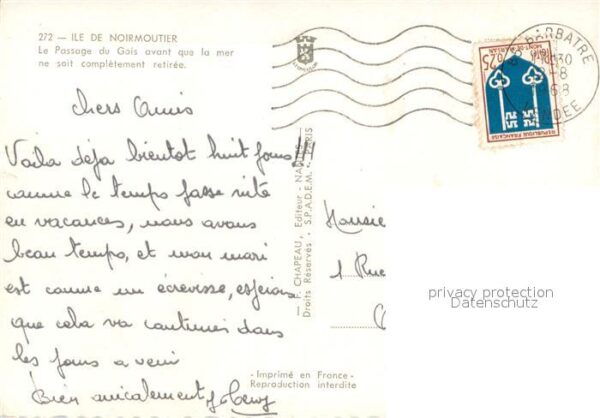 272 — ILE DE NOIRMOUTIER
Le Passage du Gois avant que la mer
ne soit complètement retirée.
chers Amis
Voila deja bientot huit jours
comme le temps passe vite
en vacances, nous avons
beau temps, et mon mari
est comme un écrevisse, espérons
que cela va continuer dans
les jours a venir
Bien amicalement
— F. CHAPEAU, Editeur - NANTES
Droits Réservés - S.P.A.D.E.M. - PARIS
- Imprimé en France -
Reproduction interdite
BARBATRE
VENDEE
0,25
MONT-DE-MARSAN
REPUBLIQUE FRANÇAISE
Monsie
1 Rue
privacy protection
Datenschutz